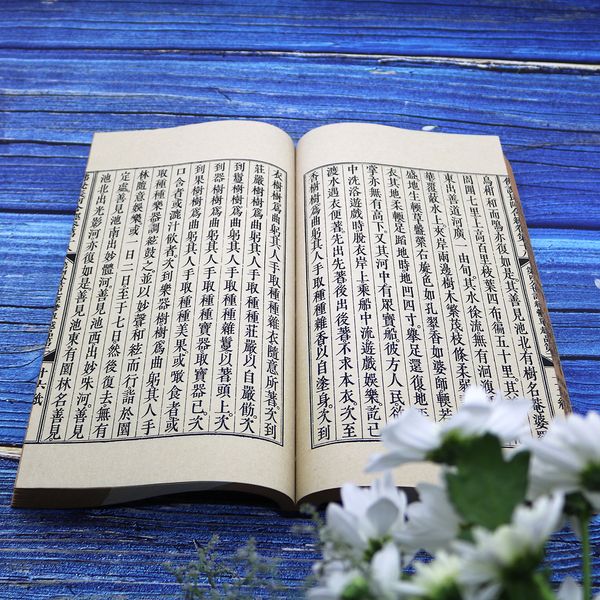 鳥相和而鳴亦復如是其善見池北有樹名菴婆
周圍七里上高百里枝葉四布徧五十里其
東出善道河廣一由旬其水徐流無有洄
華覆蔽水上夾岸兩邊樹木繁茂枝條柔弱
盛地生輭草槃縈右旋色如孔翠香如婆師
衣其地柔輭足蹈地時地凹四寸舉足還復地
掌亦無有高下又其河中有眾寶船彼方人民欲
中洗浴遊戲時脫衣岸上乘船中流遊戲娛樂訖已
渡水遇衣便著先出先著後出後著不求本衣次至
香樹樹爲曲躬其人手取種種雜香以自塗身次到
衣樹樹爲曲躬其人手取種種雜衣隨意所著次到
莊嚴樹樹爲曲躬其人手取種種莊嚴以自嚴飾次
到鬘樹樹爲曲躬其人手取種種雜鬘以著頭上次
到器樹樹爲曲躬其人手取種種寶器取寶器已次
到果樹樹爲曲躬其人手取種種美果或噉食者或
口含者或漉汁飲者次到樂器樹樹爲曲躬其人手
取種種樂器調絃鼓之並以妙聲和絃而行詣於園
林隨意娛樂或一日二日至於七日然後復去無有
定處善見池南出妙體河善見池西出妙味河善見
池北出光影河亦復如是善見池東有園林名善見
十六紙